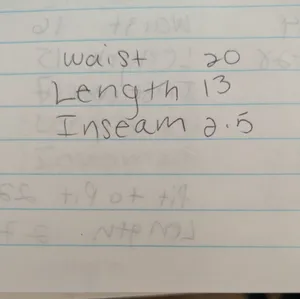 Waist 20
Length 13
Inseam 2.5